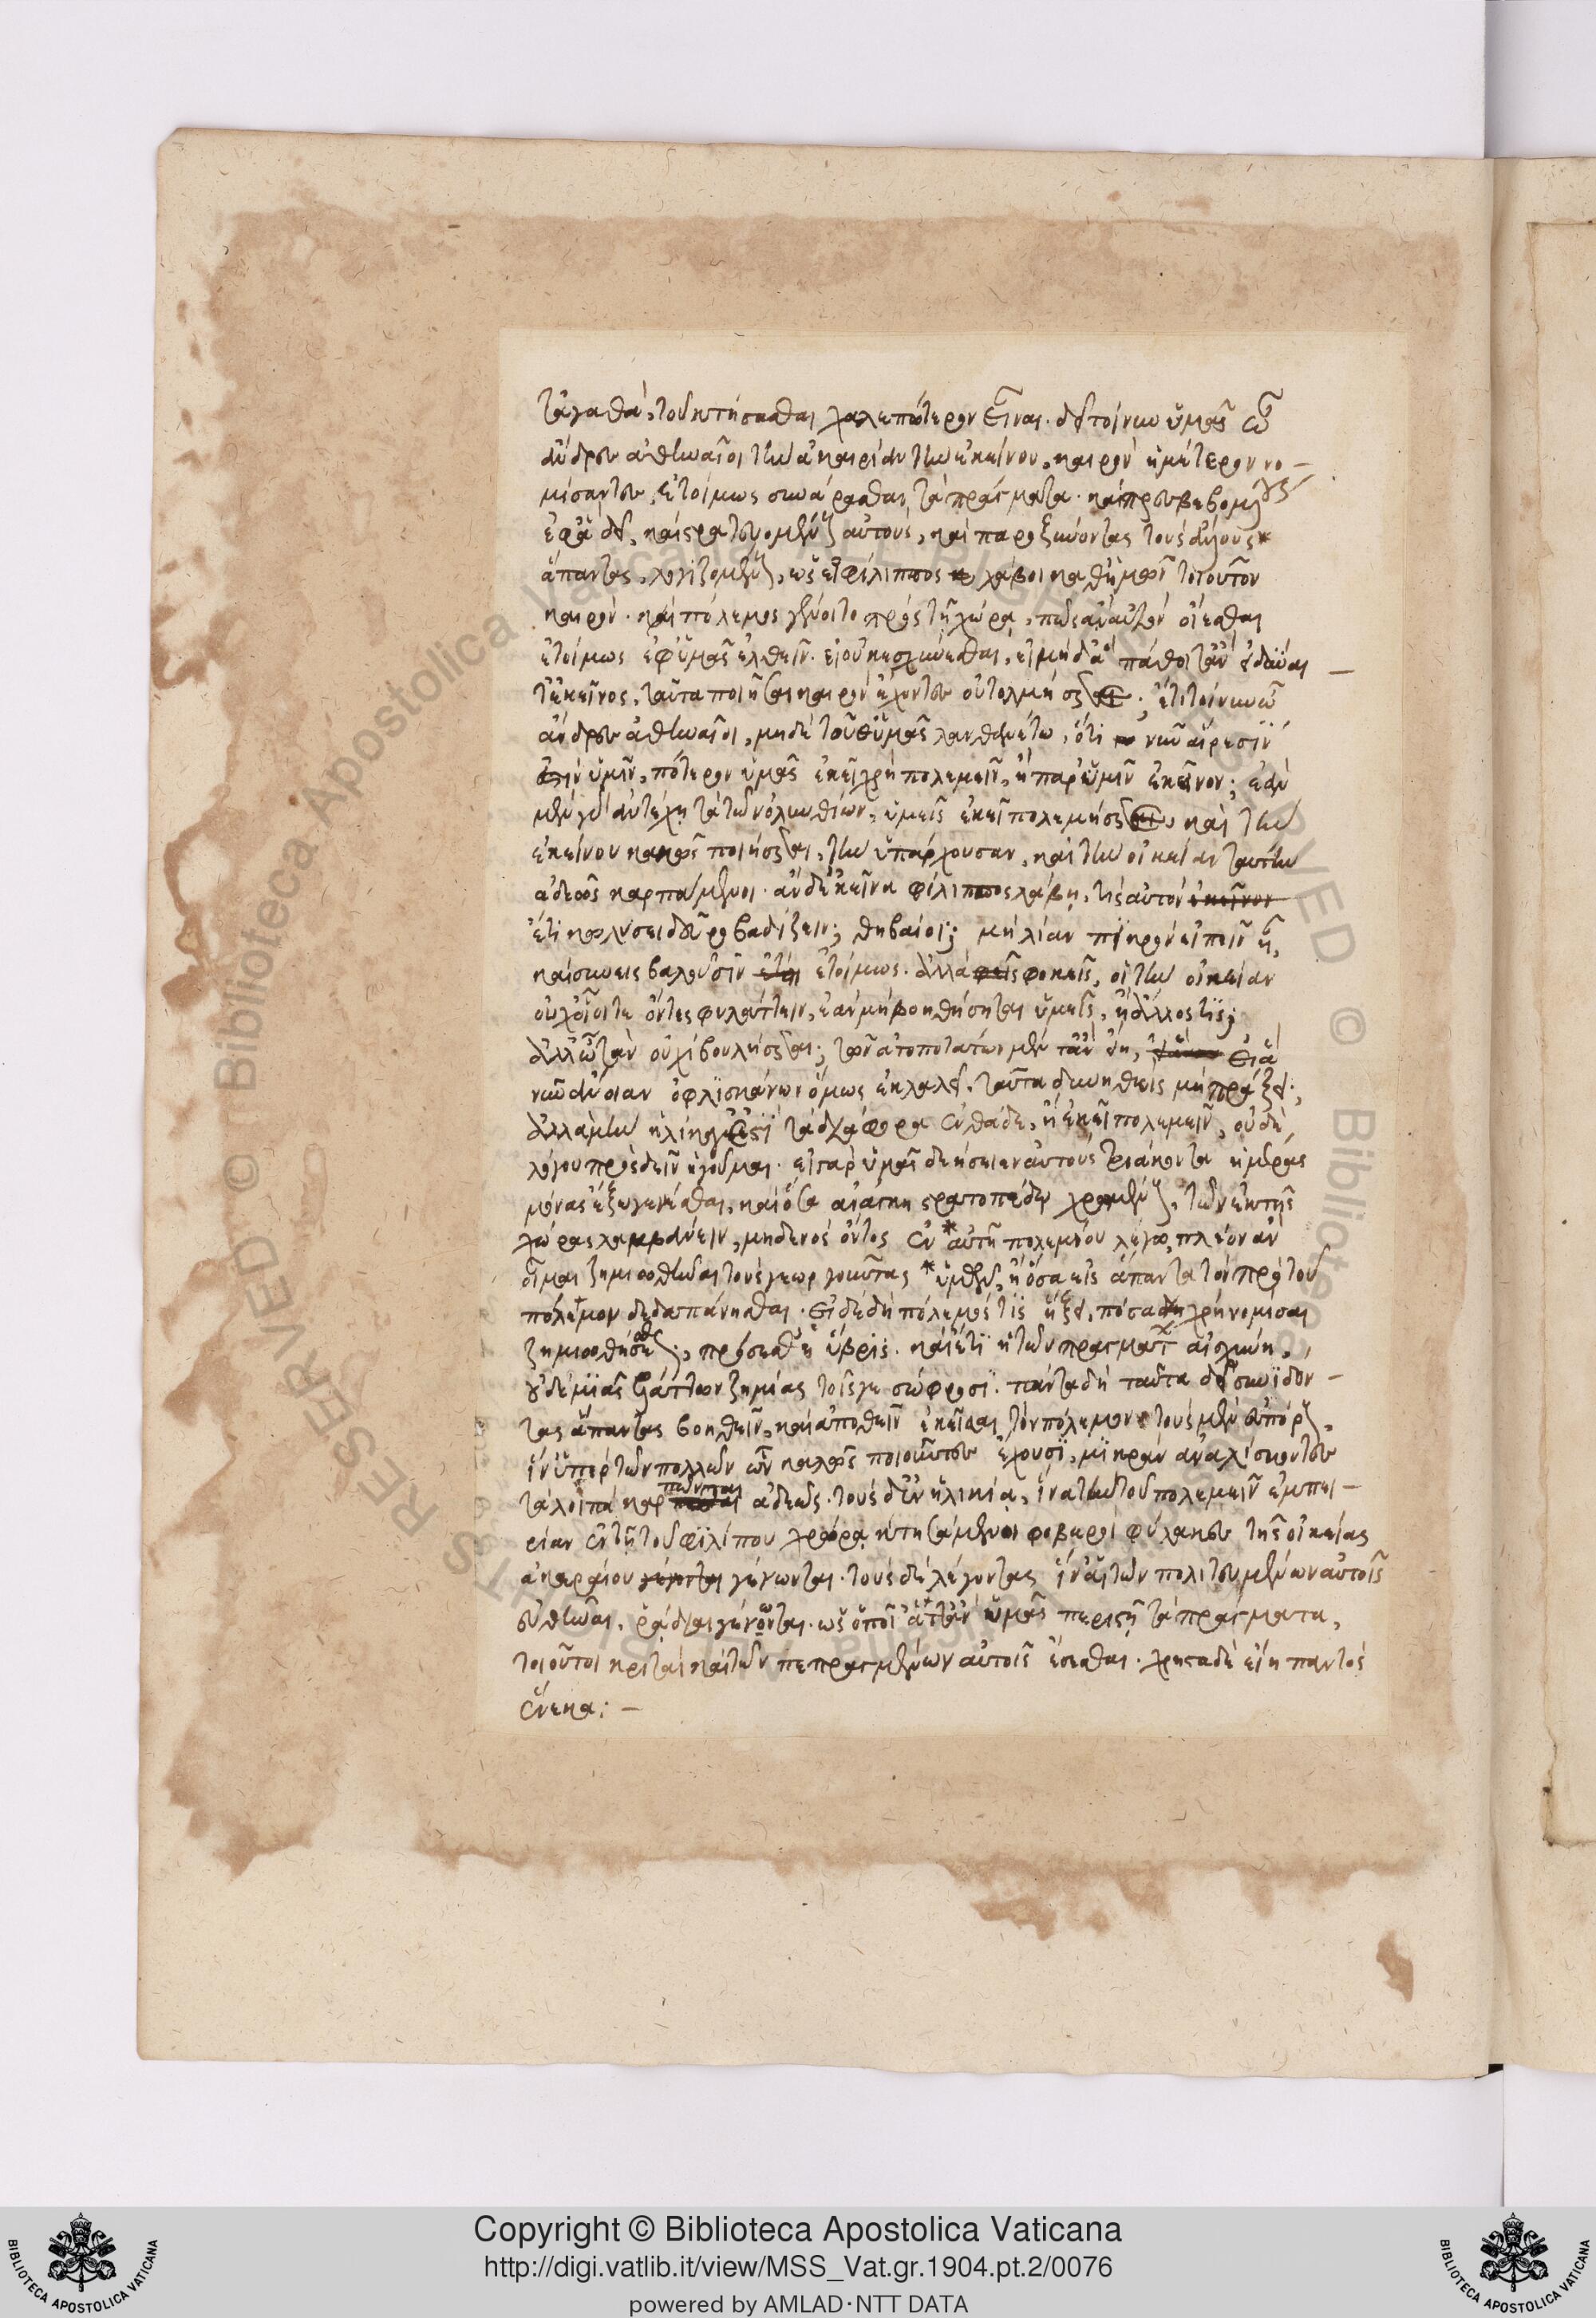 τἀγαθὰ, τοῦ κτήσασθαι χαλεπώτερον εἶναι. δεῖ τοίνυν ὑμᾶς ὦ
ἄνδρες ἀθηναῖοι τὴν ἀκαιρίαν τὴν ἐκείνου, καιρὸν ἡμέτερον νο-
μίσαντες, ἑτοίμως συνάρασθαι τὰ πράγματα. καὶ πρεσβευομένους
ἐφ' ἃ δεῖ, καὶ στρατευομένους αὐτοὺς, καὶ παροξύνοντας τοὺς ἄλλους
ἅπαντας, λογιζομένους, ὡς εἰ φίλιππος λάβοι καθ' ἡμῶν τοιοῦτον
καιρὸν. καὶ πόλεμος γένοιτο πρὸς τῇ χώρᾳ, πῶς ἂν αὐτὸν οἴεσθαι
ἑτοίμως ἐφ' ὑμᾶς ἐλθεῖν. εἰ οὐκ αἰσχύνεσθαι, εἰ μὴ δ' ἃ πάθοιτ' ἂν εἰ δύναι
τ' ἐκεῖνος, ταῦτα ποιῆσαι καιρὸν ἔχοντες οὐ τολμήσεται; ἔτι τοίνυν ὦ
ἄνδρες ἀθηναῖοι, μηδὲ τοῦθ' ὑμᾶς λανθανέτω, ὅτι νῦν αἵρεσίν
ἐστιν ὑμῖν, πότερον ὑμᾶς ἐκεῖ χρὴ πολεμεῖν, ἢ παρ' ὑμῖν ἐκεῖνον; ἐὰν
μὲν γὰρ ἀντέχῃ τὰ τῶν ὀλυνθίων, ὑμεῖς ἐκεῖ πολεμήσεται, καὶ τὴν
ἐκείνου κακῶς ποιήσεται, τὴν ὑπάρχουσαν, καὶ τὴν οἰκείαν ταύτην
ἀδεῶς καρπούμενοι. ἂν δ' ἐκεῖνα φίλιππος λάβῃ, τίς αὐτὸν ἐκεῖνον
ἔτι κωλύσει δεῦρο βαδίζειν; θηβαίοι; μὴ λίαν πικρὸν εἰπεῖν ᾖ,
καὶ συνεισβαλοῦσιν ἑτοίμως. ἀλλὰ φωκεῖς, οἱ τὴν οἰκείαν
οὐχ οἷοί τε ὄντες φυλάττειν, ἐὰν μὴ βοηθήσηται ὑμεῖς, ἢ ἄλλος τίς;
ἀλλ' ὦ τὰν οὐχὶ βουλήσεται; τῶν ἀτοποτάτων μὲν τἂν εἴη, εἰ ἃ
νῦν ἄνοιαν ὀφλισκάνων ὅμως ἐκλαλεῖ, ταῦτα δυνηθεὶς μὴ πράξει;
ἀλλὰ μὴν ἡλίκα γ' ἐστὶ τὰ διάφορα ἐνθάδε, ἢ ἐκεῖ πολεμεῖν, οὐδὲ
λόγου προσδεῖν ἡγοῦμαι. εἰ γὰρ ὑμᾶς δεήσειεν αὐτοὺς τριάκοντα ἡμέρας
μόνας ἔξω γενέσθαι, καὶ ὅσα ἀνάγκη στρατοπέδῳ χρωμένους, τῶν ἐκ τῆς
χώρας λαμβάνειν, μηδενὸς ὄντος ἐν * αὐτῇ πολεμίου λέγω, πλέον ἂν
οἶμαι ζημιωθῆναι τοὺς γεωργοῦντας * ὑμῶν, ἢ ὅσα εἰς ἅπαντα τὸν πρὸ τοῦ
πόλεμον δεδαπάνησθαι. εἰ δὲ δὴ πόλεμός τις ἥξει, πόσα δὴ χρὴ νομίσαι
ζημιωθήσεσθαι, πρόσεσθ' ἡ ὕβρις. καὶ ἔτι ἡ τῶν πραγμάτων αἰσχύνη,
οὐδεμίας ἐλάττων ζημίας τοῖς γε σώφροσι. πάντα δὴ ταῦτα δεῖ συνιδόν-
τας ἅπαντας βοηθεῖν, καὶ ἀπωθεῖν ἐκεῖσαι τὸν πόλεμον τοὺς μὲν εὐπόρους,
ἵν' ὑπὲρ τῶν πολλῶν ὧν καλῶς ποιοῦντες ἔχουσι, μικρὰν ἀναλίσκοντες
τὰ λοιπὰ καρπῶνται ἀδεῶς. τοὺς δ' ἐν ἡλικίᾳ, ἵνα τὴν τοῦ πολεμεῖν ἐμπει-
ρίαν ἐν τῇ τοῦ φιλίπου χώρᾳ κτησάμενοι φοβεροὶ φύλακες τῆς οἰκείας
ἀκεραίου γένωνται. τοὺς δὲ λέγοντας ἵν' αἱ τῶν πολιτευμένων αὐτοῖς
εὐθῦναι, ῥάδιαι γένωνται. ὡς ὁποῖ' ἄττ' ἂν ὑμᾶς περιστῇ τὰ πράγματα,
τοιοῦτοι κριταὶ καὶ τῶν πεπραγμένων αὐτοῖς ἔσεσθαι. χρηστὰ δὲ εἴη παντὸς
ἕνεκα: -
Copyright © Biblioteca Apostolica Vaticana
http://digi.vatlib.it/view/MSS_Vat.gr.1904.pt.2/0076
powered by AMLAD·NTT DATA